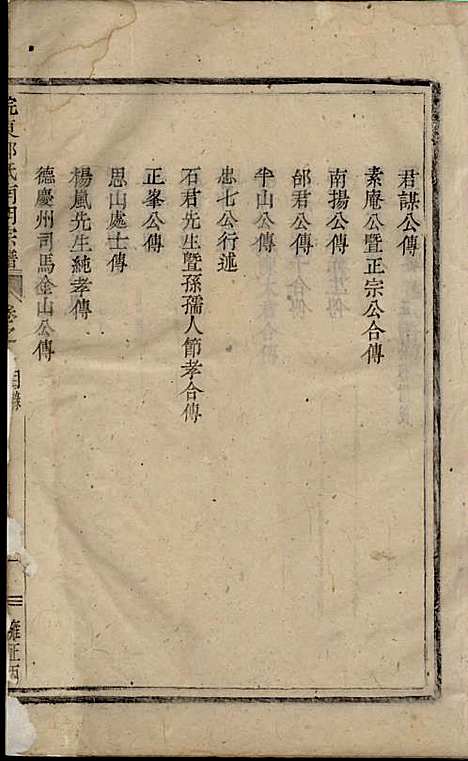 君謀公傳
素庵公暨正宗公合傳
南揚公傳
邰君公傳
半山公傳
忠七公行述
石君先生暨孫孺人節孝合傳
正峯公傳
思山處士傳
楊嵐先生純孝傳
德慶州司馬金山公傳
氏南門宗譜
目錄